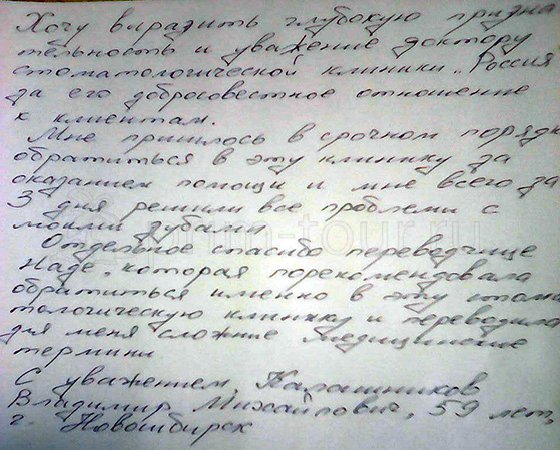 Хочу выразить глубокую призна
тельность и уважение доктору
стоматологической клиники „Россия
за его добросовестное отношение
к клиентам.
Мне пришлось в срочном порядк
обратиться в эту клинику за
оказанием помощи и мне всего за
3 дня решили все проблемы с
моими зубами
Отдельное спасибо переводчице
Наде, которая порекомендовала
обратиться именно в эту стома
тологическую клинику и переводила
для меня сложные медицинские
термины
С уважением, Калашников
Владимир Михайлович, 59 лет,
г. Новосибирск